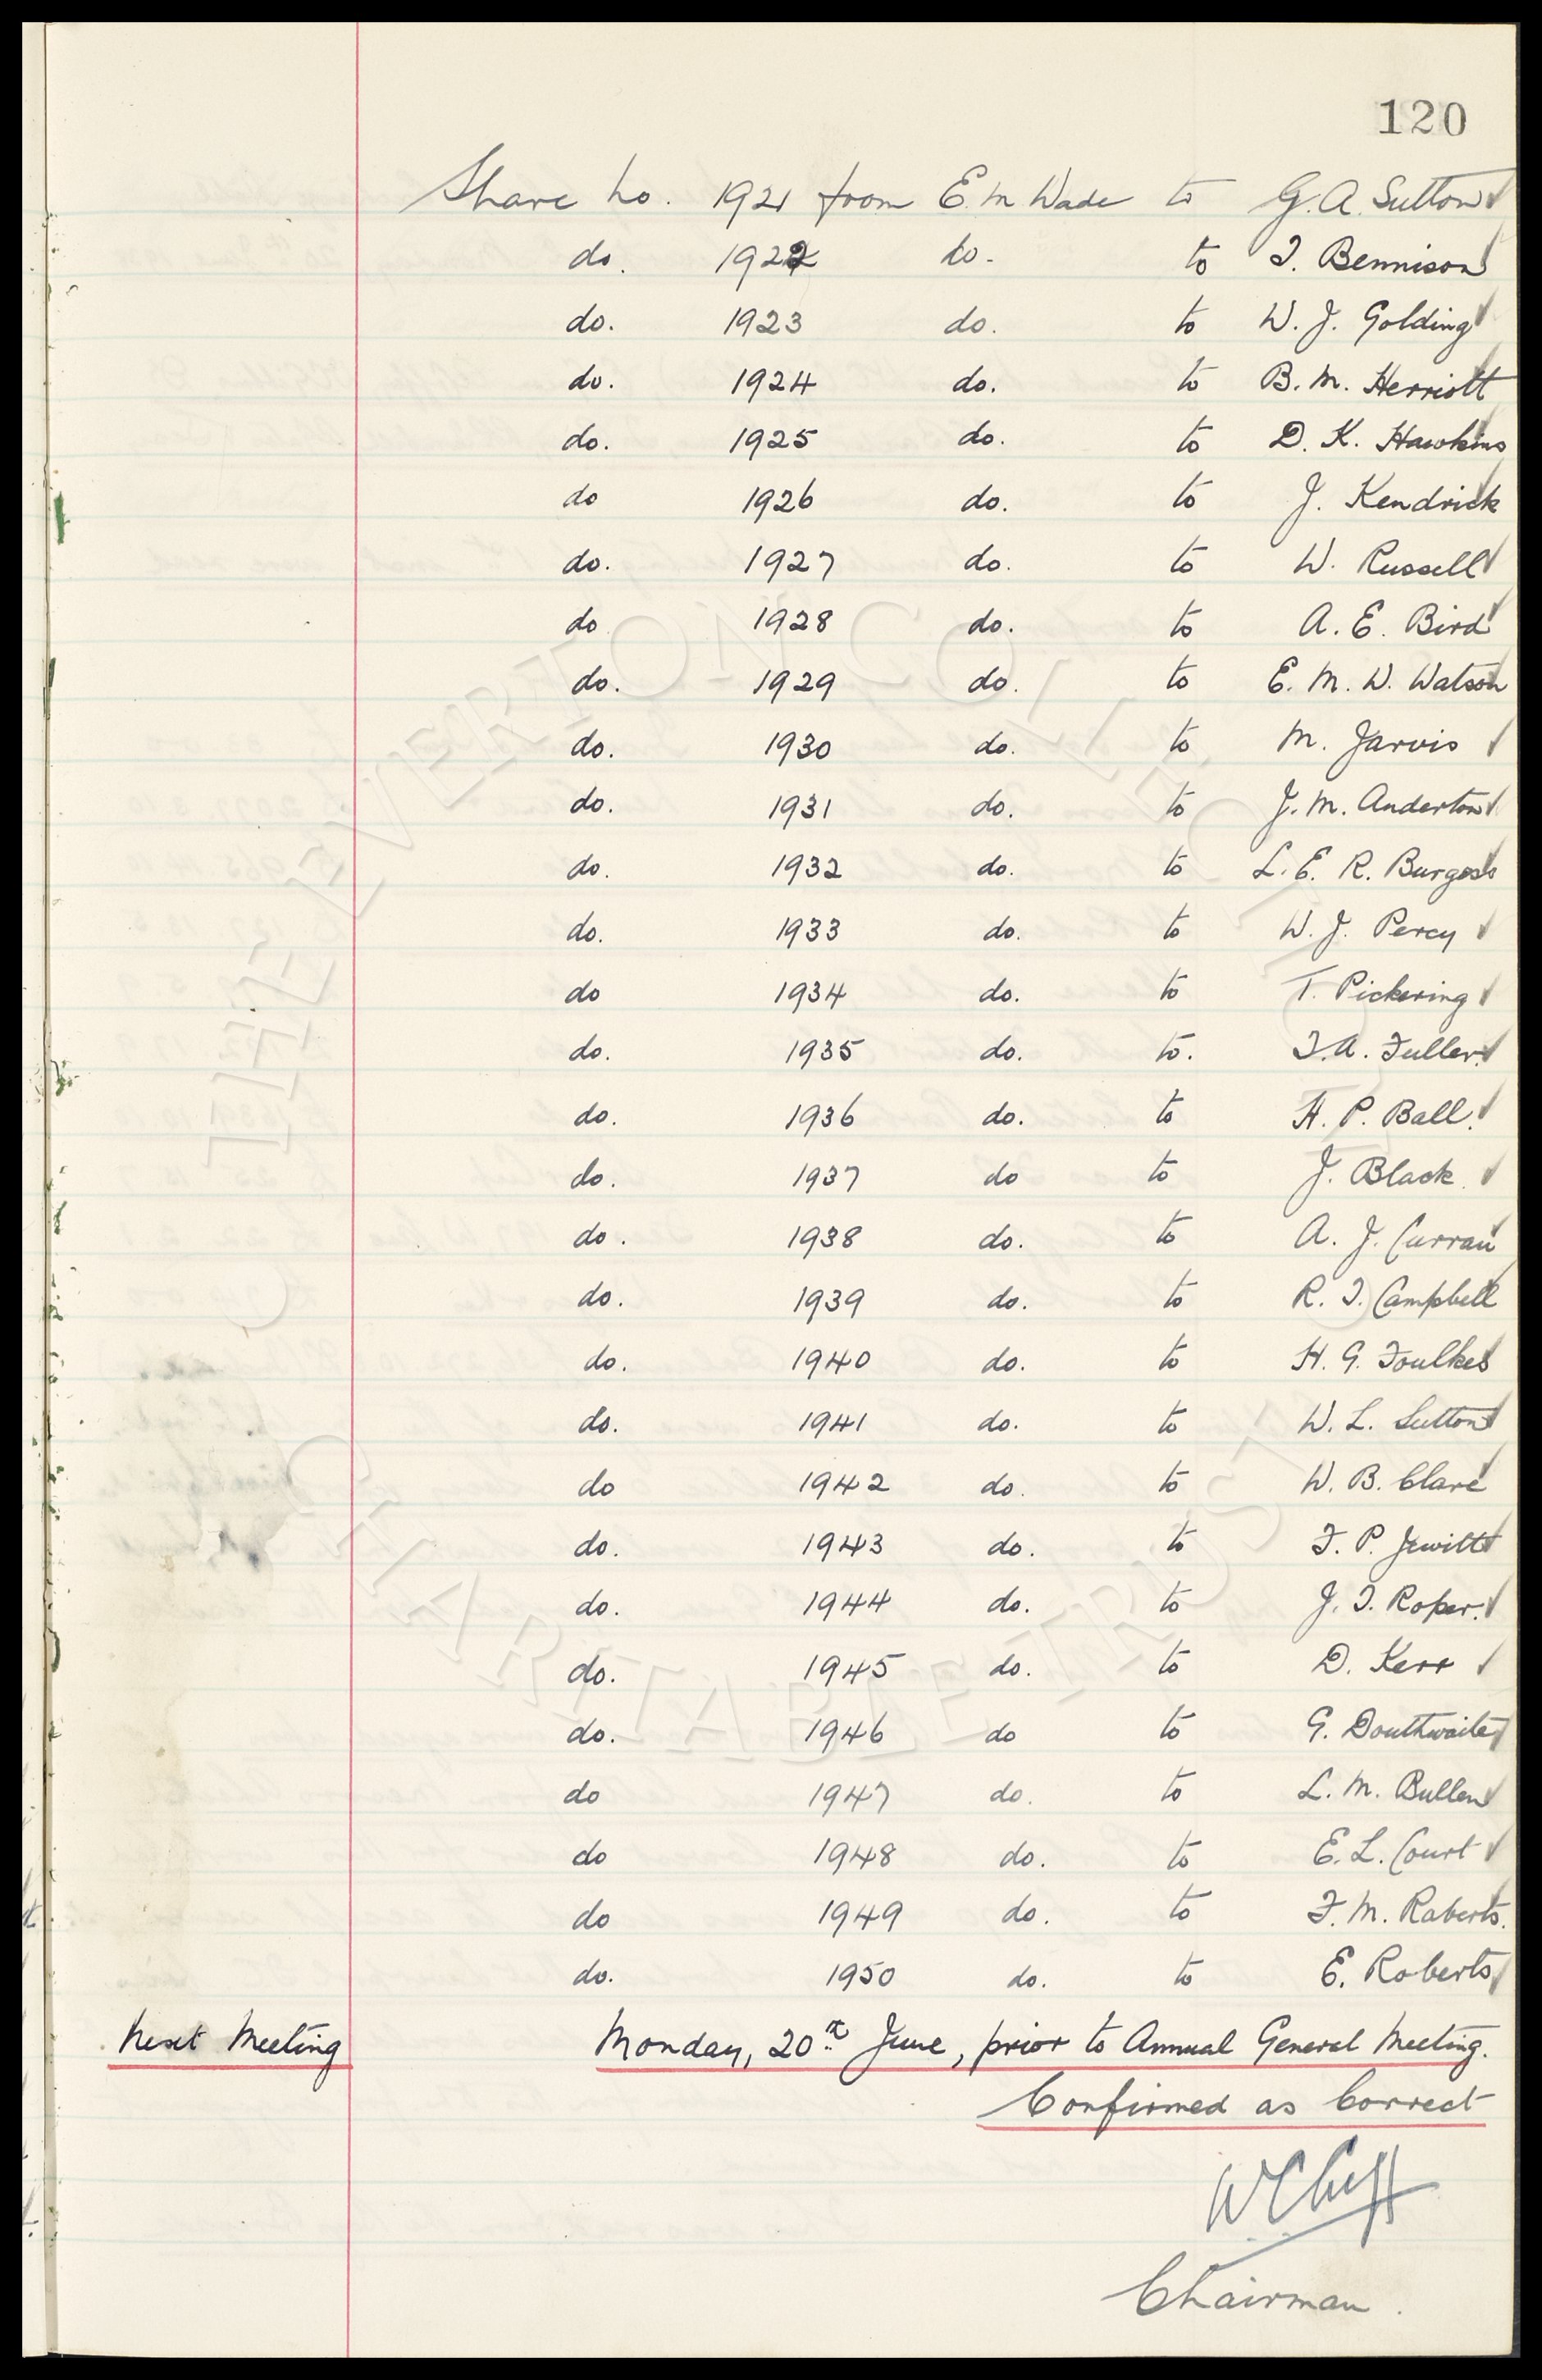 120
Share No. 1921 from E. M Wade to G. A. Sutton
do. 1922 do. to T. Bennison
do. 1923 do. to W. J. Golding
do. 1924 do. to B. M. Herriott
do. 1925 do. to D. K. Hawkins
do 1926 do. to J. Kendrick
do. 1927 do. to W. Russell
do 1928 do. to A. E. Bird
do. 1929 do. to E. M. W. Watson
do. 1930 do. to M. Jarvis
do. 1931 do. to J. M. Anderton
do. 1932 do. to L. E. R. Burgess
do. 1933 do. to W. J. Percy
do 1934 do. to T. Pickering
do. 1935 do. to. T. A. Fuller.
do. 1936 do. to H. P. Ball.
do. 1937 do to J. Black.
do. 1938 do. to A. J. Curran
do. 1939 do. to R. T. Campbell
do. 1940 do. to H. G. Foulkes
do. 1941 do. to W. L. Sutton
do 1942 do. to W. B. Clare
do. 1943 do. to F. P. Jewitt
do. 1944 do. to J. T. Roper.
do. 1945 do. to D. Kerr
do. 1946 do to G. Douthwaite
do 1947 do. to L. M. Bullen
do 1948 do. to E. L. Court
do 1949 do. to F. M. Roberts.
do. 1950 do. to E. Roberts
Next Meeting Monday, 20th June, prior to Annual General Meeting.
Confirmed as Correct
W C Cuff
Chairman.
THE EVERTON COLLECTION
CHARITABLE TRUST